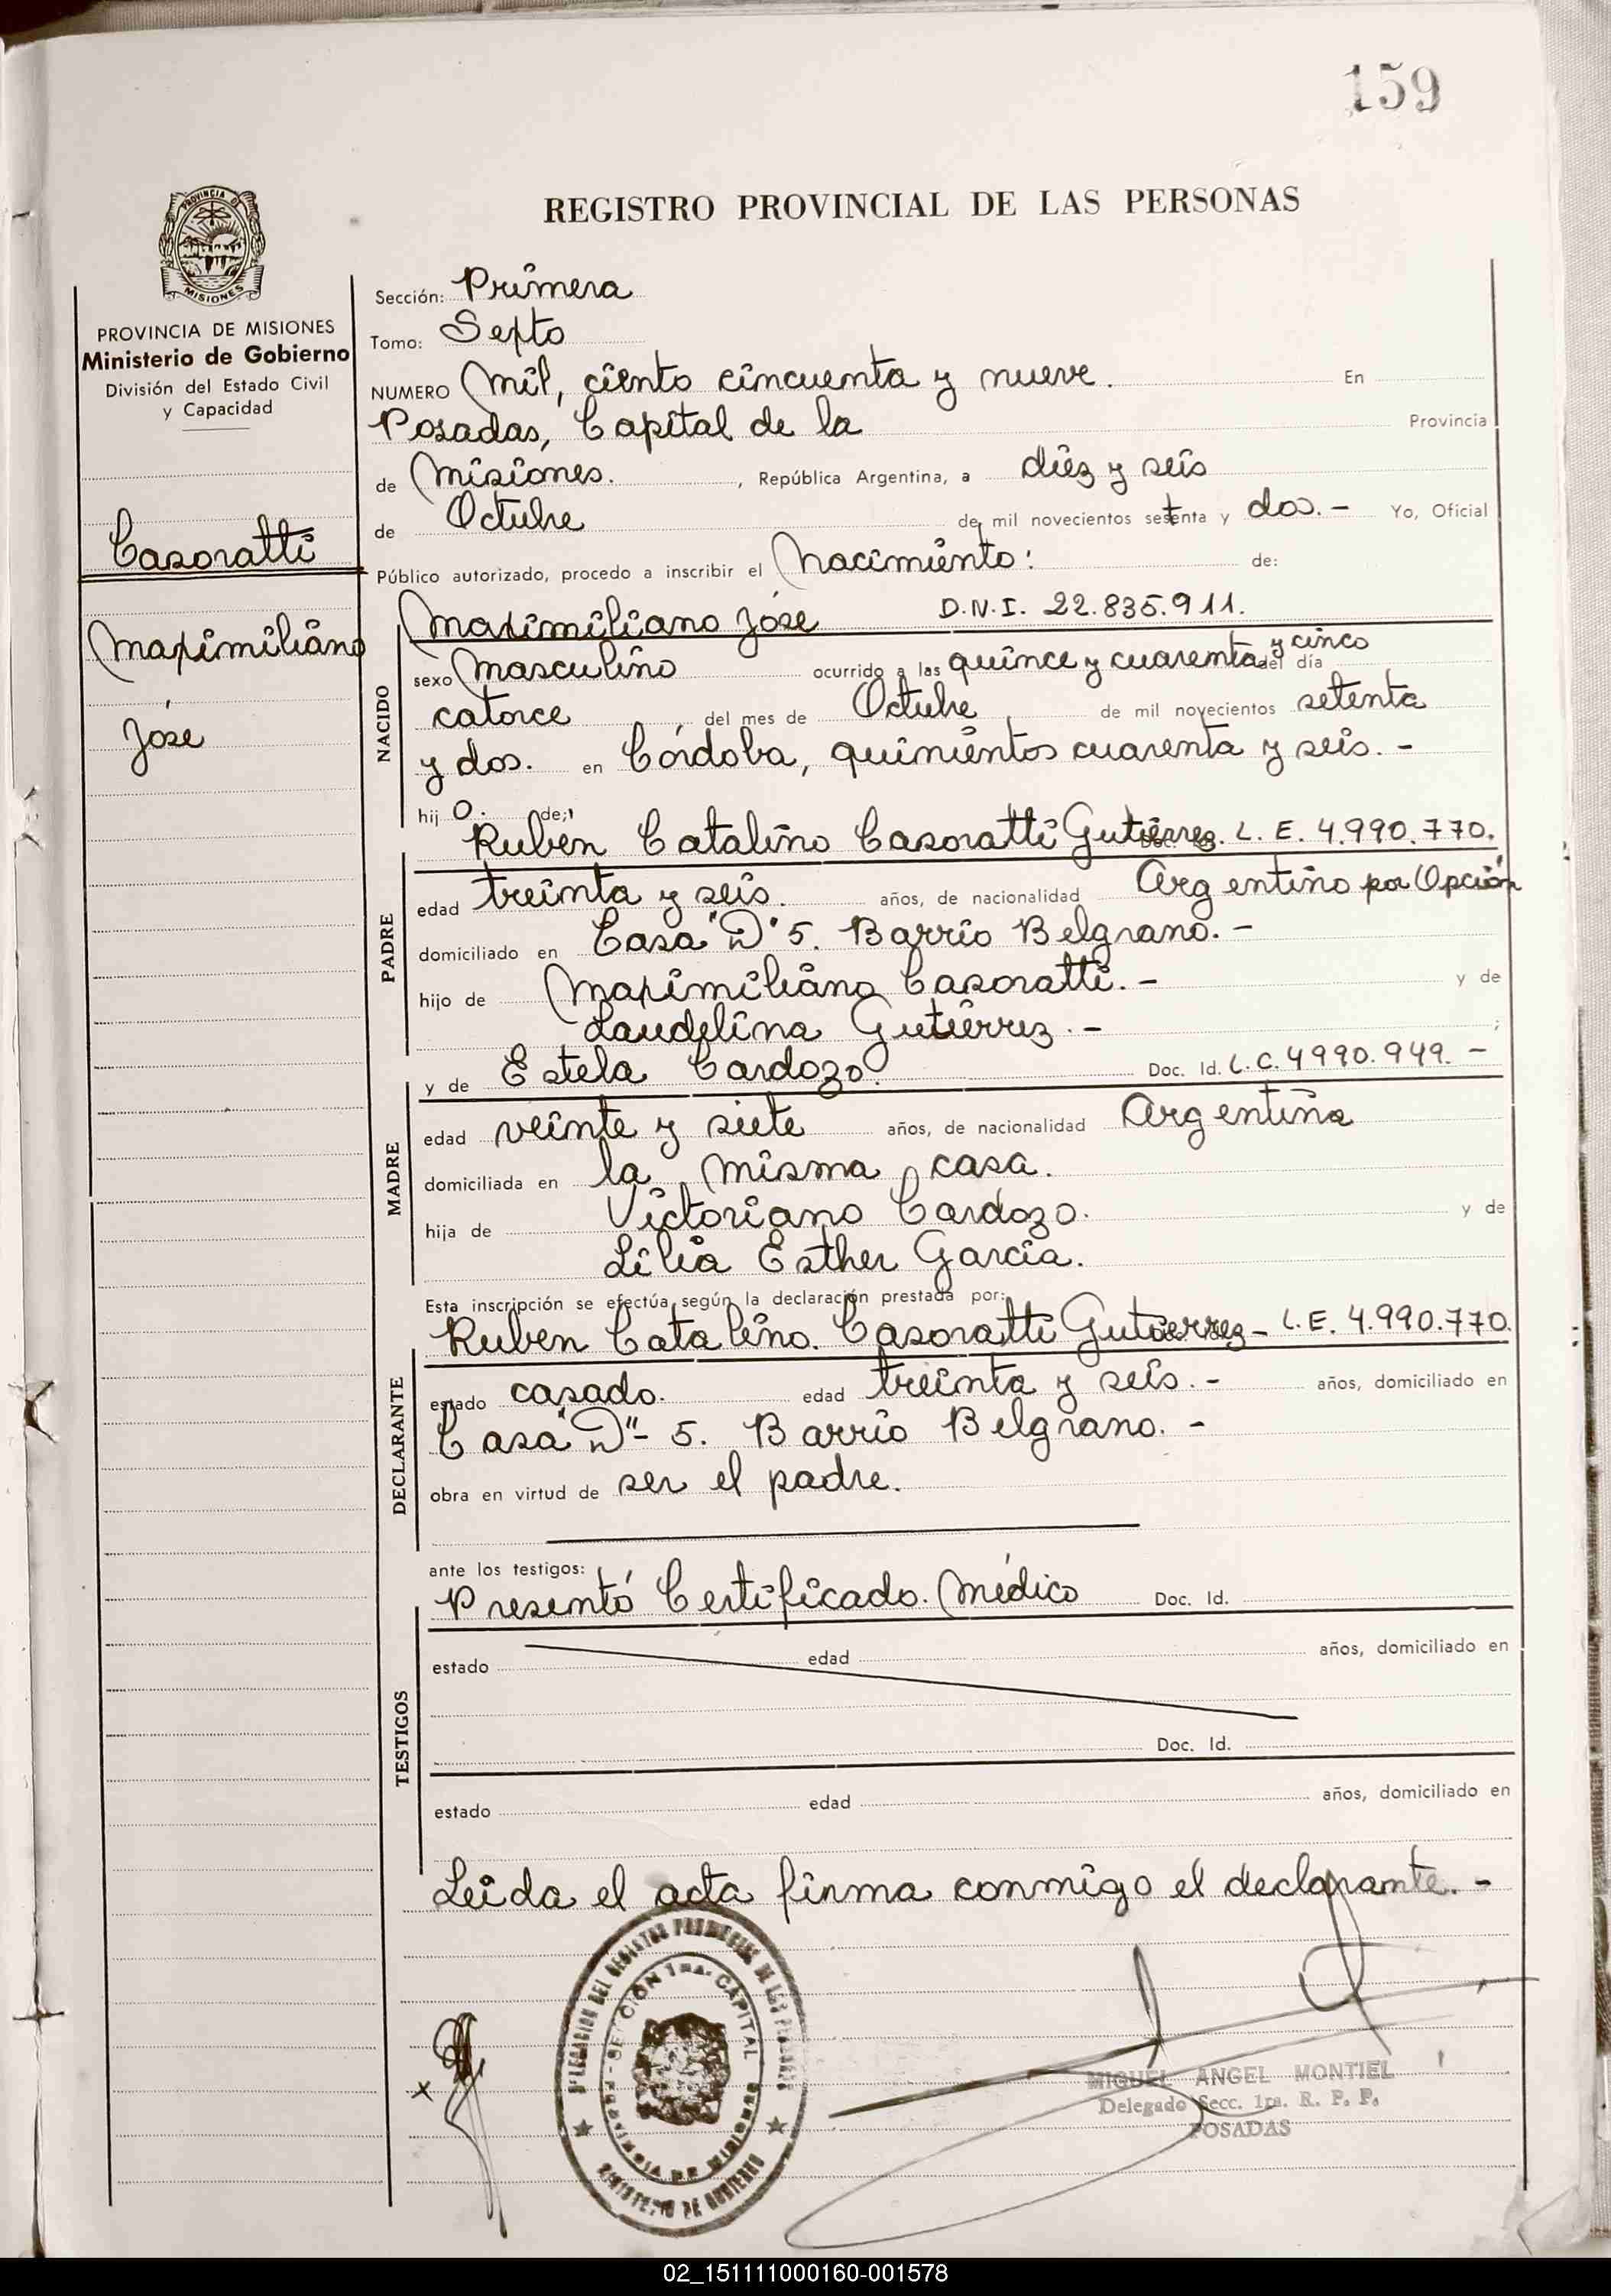 159
REGISTRO PROVINCIAL DE LAS PERSONAS
PROVINCIA DE
MISIONES
PROVINCIA DE MISIONES
Ministerio de Gobierno
División del Estado Civil
y Capacidad
Casoratti
Maximiliano
José
Sección: Primera
Tomo: Septo
NUMERO Mil, ciento cincuenta y nueve. En
Posadas, Capital de la Provincia
de Misiones. , República Argentina, a diez y seis
de Octubre de mil novecientos setenta y dos. - Yo, Oficial
Público autorizado, procedo a inscribir el Nacimiento: de:
Maximiliano José D.N.I. 22.835.911.
NACIDO
sexo Masculino ocurrido a las quince y cuarenta y cinco del día
catorce , del mes de Octubre , de mil novecientos setenta
y dos. en Córdoba, quinientos cuarenta y seis. -
hij o. de;
Ruben Catalino Casoratti Gutiérrez. L. E. 4.990.770.
PADRE
edad treinta y seis. años, de nacionalidad Argentino por Opción
domiciliado en Casa "D" 5. Barrio Belgrano. -
hijo de Maximiliano Casoratti. - y de
Laudelina Gutiérrez. - ;
y de Estela Cardozo. Doc. Id. L.C. 4990.949. -
MADRE
edad veinte y siete años, de nacionalidad Argentina
domiciliada en la misma casa.
hija de Victoriano Cardozo. y de
Lilia Esther García.
Esta inscripción se efectúa según la declaración prestada por:
Ruben Catalino. Casoratti Gutierrez - L.E. 4.990.770.
DECLARANTE
estado casado. edad treinta y seis. - años, domiciliado en
Casa "D" - 5. Barrio Belgrano. -
obra en virtud de ser el padre.
ante los testigos:
Presentó Certificado. Médico Doc. Id.
TESTIGOS
estado edad años, domiciliado en
Doc. Id.
estado edad años, domiciliado en
Leida el acta firma conmigo el declarante. -
x
DELEGACION DEL REGISTRO PROVINCIAL DE LAS PERSONAS
SECCION 1ra. CAPITAL
PROVINCIA DE MISIONES
MINISTERIO DE GOBIERNO
MIGUEL ANGEL MONTIEL
Delegado Secc. 1ra. R. P. P.
POSADAS
02_151111000160-001578